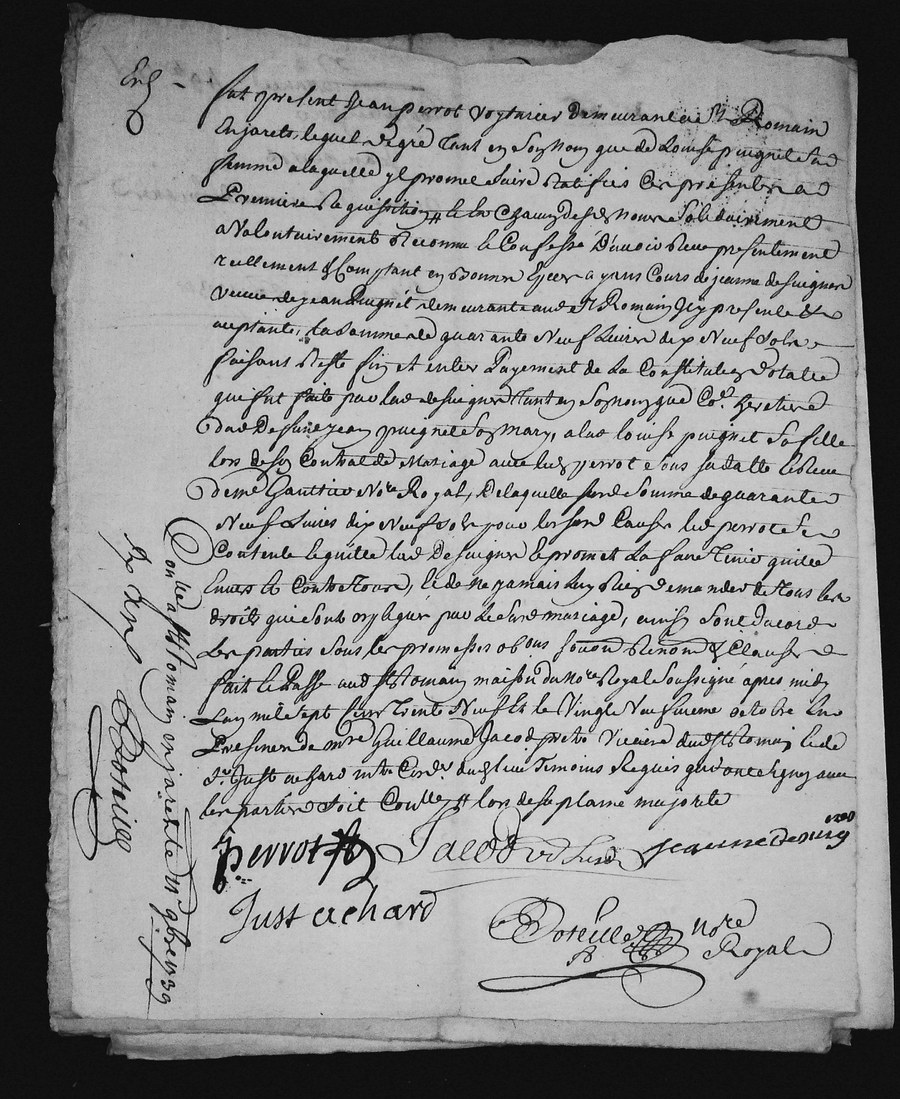 Exp
fut present Jean perrot Voyturier demeurant a St Romain
En jarets, lequel de gré Tant en Son nom que de Louise puignet Sa
femme a laquelle yl promet faire Ratifier Ces presentes a
Premiere Requisition # Et En Chacun desd noms Solidairement
a Volontairement Reconnu Et Confessé D'avoir Receu presentement
reellement & Comptant en Bonnes Especes ayans Cours de jeanne
Veuve de jean Puignet demeurante aud St Romain Icy presente &
aceptante, La Somme de quarante Neuf Livres dix Neuf Sols
faisant Reste fin et entier Payement de La Constitution Dotalle
qui fut faite par lad Tant en Son nom que Co. heretiere
dud Deffunt jean puignet Son mary, a lad Louise puignet Sa fille
lors de Son Contrat de Mariage avec led perrot Sous Sa datte Receu
de me Gauttier Nore Royal, De laquelle Susd Somme de quarante
Neuf Livres dix Neuf Sols pour les Susd Causes led perrot Se
Contente Et quitte lad Et promet La faire Tenir quitte
Envers Et Contre Tous, Et de Ne jamais Luy Rien demander de Tous les
droits qui Sont Expliqués par Le Susd mariage, ainsy Sont dacord
Les parties Sous les promesses obons Renon & Clauses
fait Et Passé aud St Romain maison du Nore Royal Soussigné apres midy
Lan mil Sept Cens Trente Neuf Et le Vingt Neufvieme octobre En
Presence de mre Guillaume Jacod pretre Vicaire dud St Romain Et de
Sr Just achard dud Lieu Temoins Requis qui ont Signé avec
les parties Soit Conllé # lors de Sa plaine majorité
perrot Jacod jeanne
Just achard
Boteille nore
Royal
Conllé a St Romain en jarest le 9bre 1739
Boteille